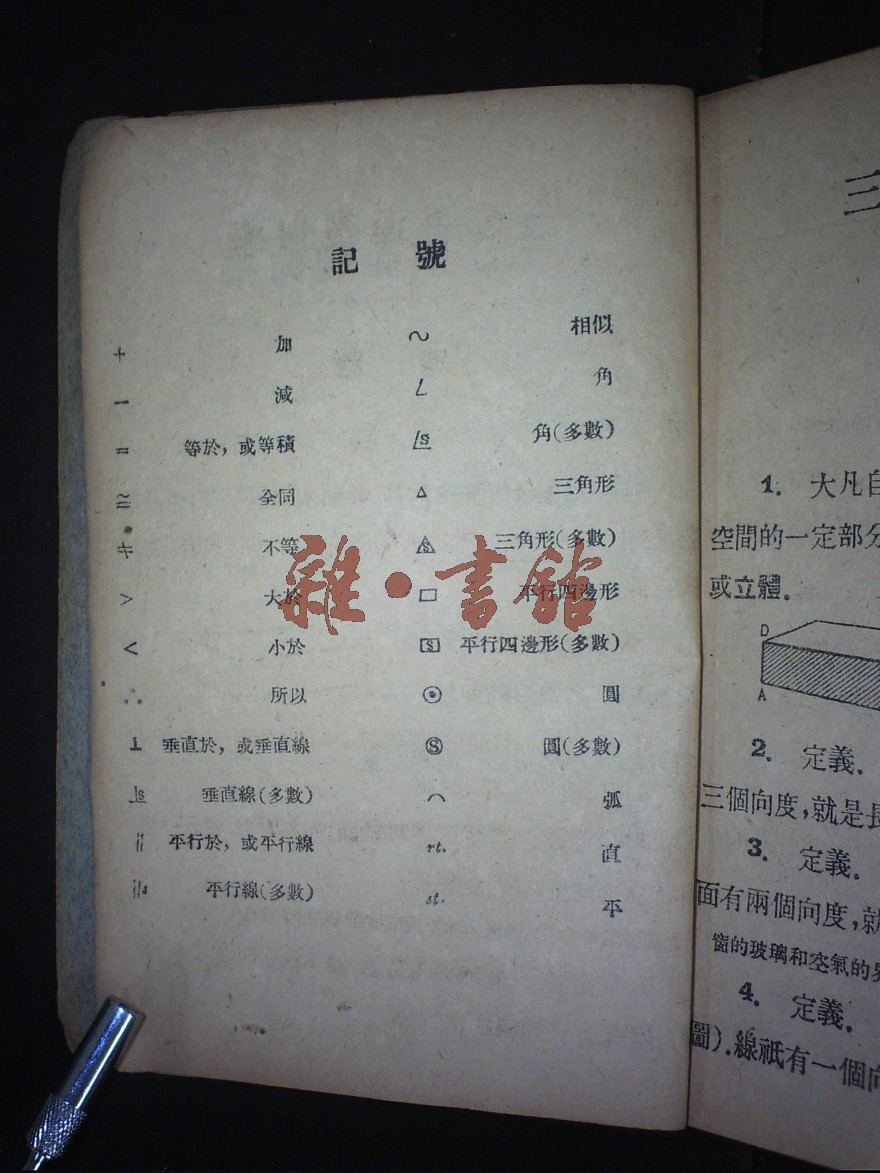 記 號
+ 加 ∼ 相似
− 減 ∠ 角
= 等於，或等積 ∠s 角(多數)
≅ 全同 △ 三角形
≠ 不等 △s 三角形(多數)
> 大於 □ 平行四邊形
< 小於 □s 平行四邊形(多數)
∴ 所以 ⊙ 圓
⊥ 垂直於，或垂直線 Ⓢ 圓(多數)
⊥s 垂直線(多數) ⌒ 弧
∥ 平行於，或平行線 rt. 直
∥s 平行線(多數) st. 平
雜·書館
三
1. 大凡自
空間的一定部分
或立體.
D
A
2. 定義.
三個向度，就是長
3. 定義.
面有兩個向度，就
窗的玻璃和空氣的界
4. 定義.
圖).線祇有一個向